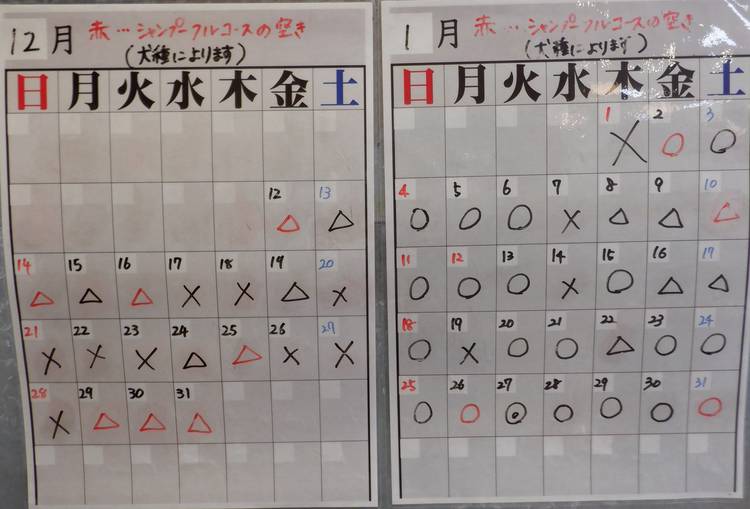 12月 赤…シャンプーフルコースの空き
(犬種によります)
日 月 火 水 木 金 土
12 13
△ △
14 15 16 17 18 19 20
△ △ △ × × △ ×
21 22 23 24 25 26 27
× × × △ △ × ×
28 29 30 31
× △ △ △
1月 赤…シャンプーフルコースの空き
(犬種によります)
日 月 火 水 木 金 土
1 2 3
× ○ ○
4 5 6 7 8 9 10
○ ○ ○ × △ △ △
11 12 13 14 15 16 17
○ ○ ○ × ○ △ △
18 19 20 21 22 23 24
○ × ○ ○ △ ○ ○
25 26 27 28 29 30 31
○ ○ ◎ ○ ○ ○ ○